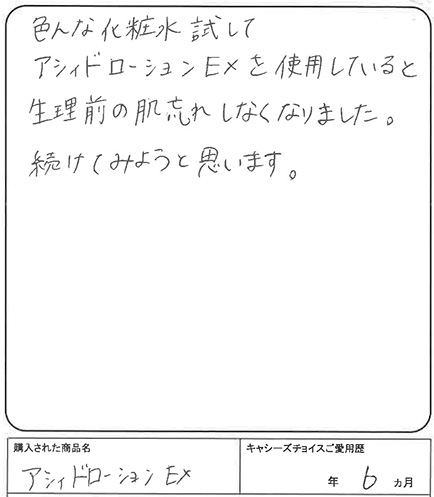 色んな化粧水試して
アシィドローションEXを使用していると
生理前の肌忘れしなくなりました。
続けてみようと思います。
購入された商品名
キャシーズチョイスご愛用歴
アシィドローションEX
年 6 ヵ月